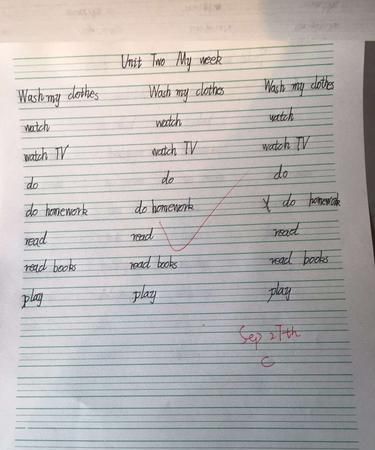 Unit Two My week
Wash my clothes Wash my clothes Wash my clothes
watch watch watch
watch TV watch TV watch TV
do do do
do homework do homework do homework
read read read
read books read books read books
play play play
Sep 27th
C